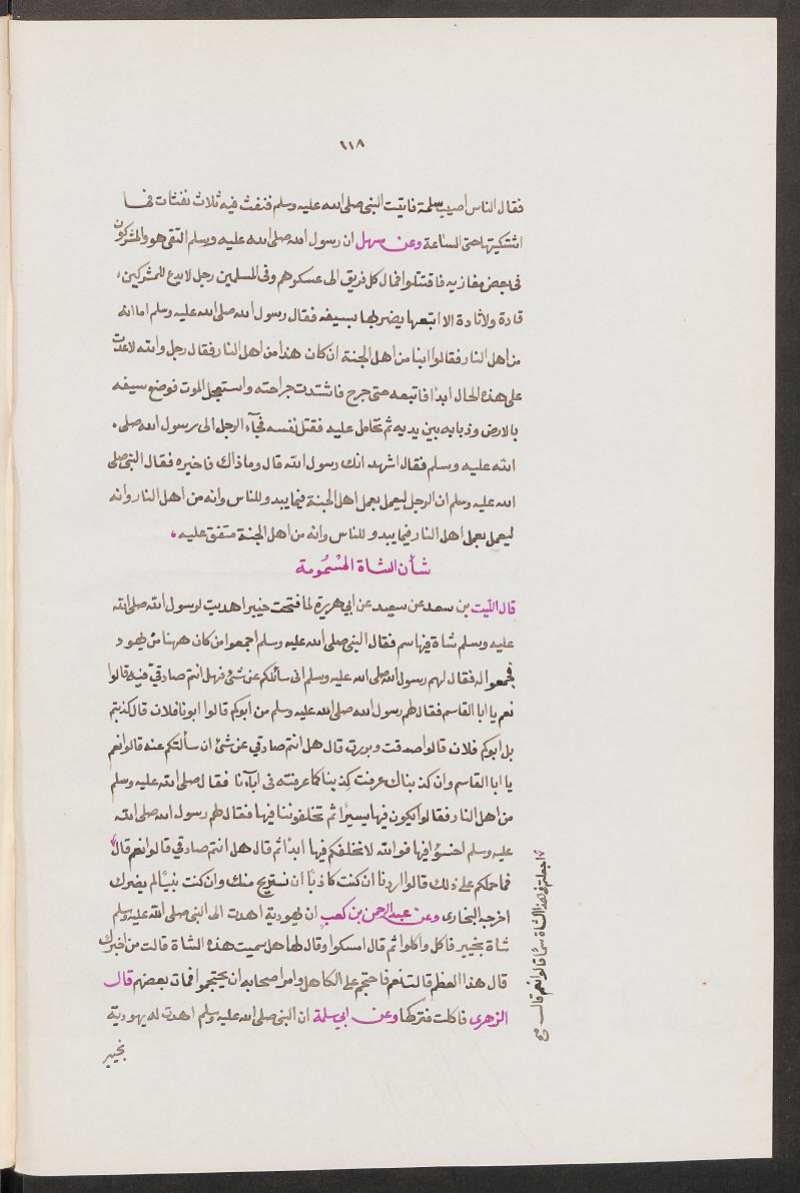 ١١٨
فقال الناس اصيب سلمة فاتيت النبى صلى الله عليه وسلم فنفث فيه ثلاث نفثات فما
اشتكيتها حتى الساعة وعن سهل ان رسول الله صلى الله عليه وسلم التقى هو والمشركون
فى بعض مغازيه فاقتتلوا فمال كل فريق الى عسكرهم وفى المسلمين رجل لا يدع للمشركين
قادة ولا ثادة الا اتبعها يضربها بسيفه فقال رسول الله صلى الله عليه وسلم اما انه
من اهل النار فقالوا اينا من اهل الجنة ان كان هذا من اهل النار فقال رجل والله لا
على هذه الحال ابدًا فاتبعه حتى جرح فاشتدت جراحته واستعجل الموت فوضع سيفه
بالارض وذبابه بين يديه ثم تحامل عليه فقتل نفسه فجآء الرجل الى رسول الله صلى
الله عليه وسلم فقال اشهد انك رسول الله قال وما ذاك فاخبره فقال النبى صلى
الله عليه وسلم ان الرجل ليعمل بعمل اهل الجنة فيما يبدو للناس وانه من اهل النار وانه
ليعمل بعمل اهل النار فيما يبدو للناس وانه من اهل الجنة متفق عليه
شأن الشاة المسْمُومة
قال الليت بن سعد عن سعيد عن ابى هريرة لما فتحت خيبر اهديت لرسول الله صلى الله
عليه وسلم شاة فيها سم فقال النبى صلى الله عليه وسلم اجمعوا من كان ههنا من يهود
فجمعوا له فقال لهم رسول الله صلى الله عليه وسلم انى سائلكم عن شئ فهل انتم صادقى فيه قالوا
نعم يا ابا القاسم فقال لهم رسول الله صلى الله عليه وسلم من ابوكم قالوا ابونا فلان قال كذبتم
بل ابوكم فلان قالوا صدقت وبررت قال هل انتم صادقى عن شئ ان سألتكم عنه قالوا نعم
يا ابا القاسم وان كذبناك عرفت كذبنا كما عرفته فى ابآءنا فقال صلى الله عليه وسلم
من اهل النار فقالوا نكون فيها يسيرًا ثم تخلفوننا فيها فقال لهم رسول الله صلى الله
عليه وسلم اخسؤا فيها فوالله لا نخلفكم فيها ابدًا ثم قال هل انتم صادقى قالوا نعم قال
فما حملكم على ذلك قالوا اردنا ان كنت كاذبًا ان نستريح منك وان كنت نبيًا لم يضرك
اخرجه البخارى وعن عبد الرحمن بن كعب ان يهودية اهدت الى النبى صلى الله عليه وسلم
شاة بخيبر فاكل واكلوا ثم قال امسكوا وقال لها هل سميت هذه الشاة قالت من اخبرك
قال هذا العظم قالت نعم فاحتجم على الكاهل وامر اصحابه ان يحتجموا فمات بعضهم قال
الزهرى فاكلت فتركها وعن ابى سلمة ان النبى صلى الله عليه وسلم اهدت له يهودية
بخيبر
اجعلتم فى هذا الشاة سمًا قالوا نعم قال صح